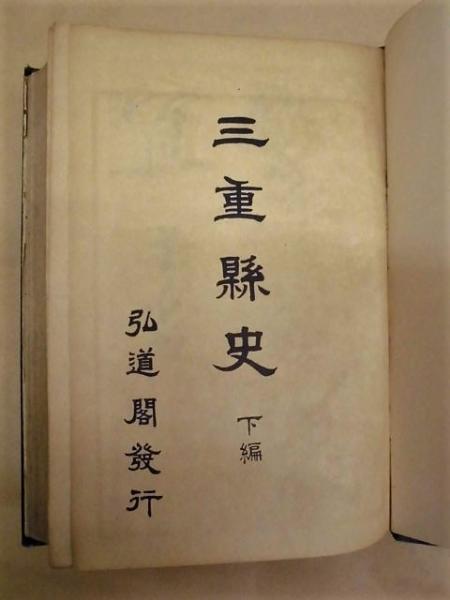 三重縣史
下編
弘道閣發行